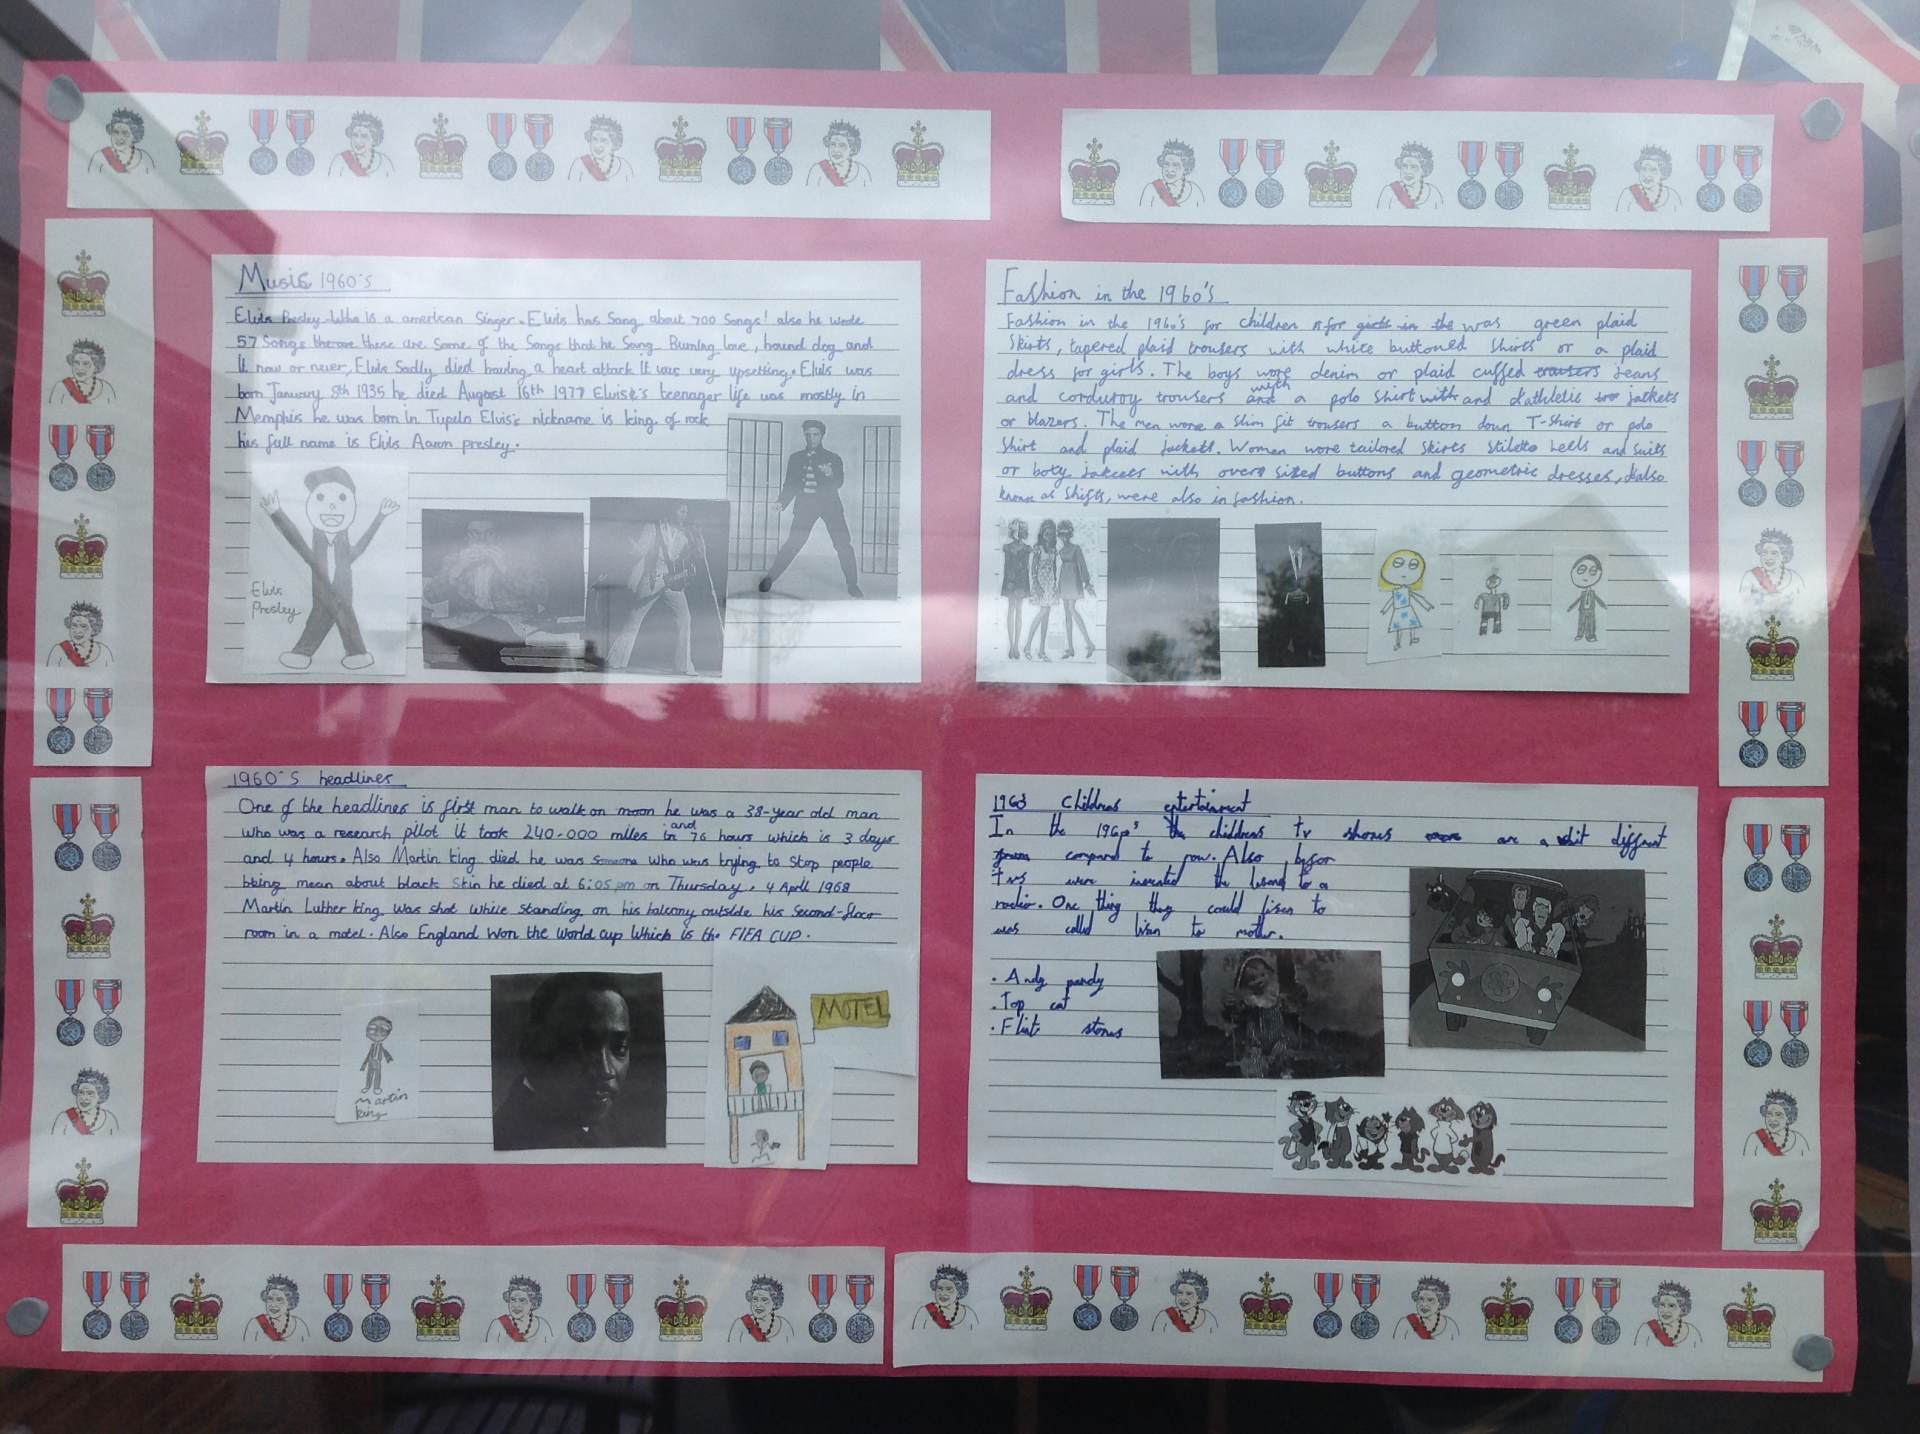 Music 1960's
Elvis Presley Who is a american Singer. Elvis has Sang about 700 Songs! also he wrote
57 Songs these are Some of the Songs that he Sang Burning love, hound dog and
It now or never, Elvis Sadly died having a heart attack it was very upsetting. Elvis was
born January 8th 1935 he died August 16th 1977 Elvise's teenager life was mostly in
Memphis he was born in Tupelo Elvis's nickname is king of rock
his full name is Elvis Aaron presley.
Elvis
Presley
Fashion in the 1960's
Fashion in the 1960's for children for girls in the was green plaid
Skirts, tapered plaid trousers with white buttoned Shirts or a plaid
dress for girls. The boys wore denim or plaid cuffed trousers Jeans
and corduroy trousers and with a polo Shirt with and athletic jackets
or blazers. The men wore a slim fit trousers a button down T-Shirt or polo
Shirt and plaid jackets. Women wore tailored Skirts Stiletto heels and Suits
or boxy jakcets with overs sized buttons and geometric dresses, also
known as Shifts, were also in fashion.
1960's headlines
One of the headlines is first man to walk on moon he was a 38-year old man
who was a research pilot it took 240.000 miles in and 76 hours which is 3 days
and 4 hours. Also Martin king died he was Someone who was trying to Stop people
being mean about black Skin he died at 6:05 pm on Thursday, 4 April 1968
Martin Luther king was shot while standing on his balcony outside his Second-floor
room in a motel. Also England won the World cup Which is the FIFA CUP.
Martin
king
MOTEL
Childrens entertainment
In the 1960's the childrens tv shows are a bit diffrent
compared to now. Also befor
Tvs were invented the lisend to a
radio. One thing they could lisen to
was called lisen to mother.
. Andy pandy
. Top cat
. Flint stones